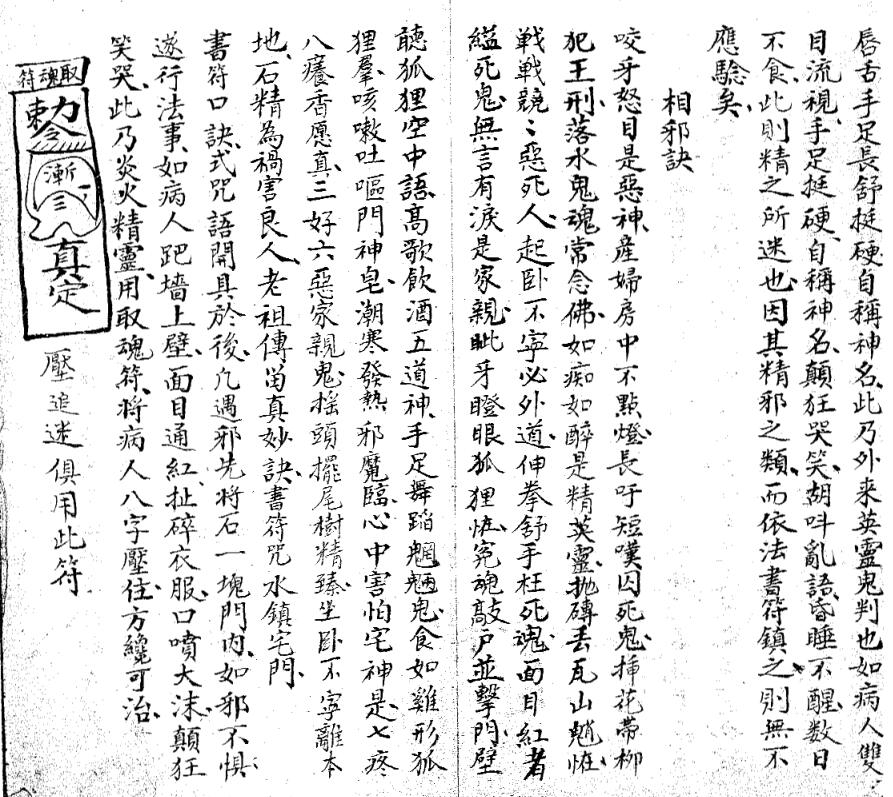 唇舌手足長舒挺硬自稱神名此乃外来英靈鬼判也如病人雙
目流視手足挺硬自稱神名顛狂哭笑胡呌亂語昏睡不醒数日
不食此則精之所迷也因其精邪之類而依法書符鎮之則無不
應驗矣
相邪訣
咬牙怒目是惡神産婦房中不點燈長吁短嘆囚死鬼揷花帶柳
犯王刑落水鬼魂常念佛如痴如醉是精英靈抛磚丢瓦山魈恠
戦戦競〻惡死人起卧不寕必外道伸拳舒手枉死魂面目紅者
縊死鬼無言有淚是家親眦牙瞪眼狐狸恠寃魂敲户並擊門壁
聽狐狸空中語髙歌飲酒五道神手足舞蹈魍魎鬼食如雞形狐
狸羣咳嗽吐嘔門神皂潮寒發熱邪魔臨心中害怕宅神是七疼
八癢香愿真三好六惡家親鬼揺頭擺尾樹精臻坐卧不寕離本
地石精為禍害良人老祖傳留真妙訣書符咒水鎮宅門
書符口訣式咒語開具於後凢遇邪先将石一塊門内如邪不惧
遂行法事如病人跁墻上壁面目通紅扯碎衣服口噴大沫顛狂
笑哭此乃炎火精靈用取魂符将病人八字壓住方纔可治
取魂符
勅
漸
三
真定
壓追迷俱用此符